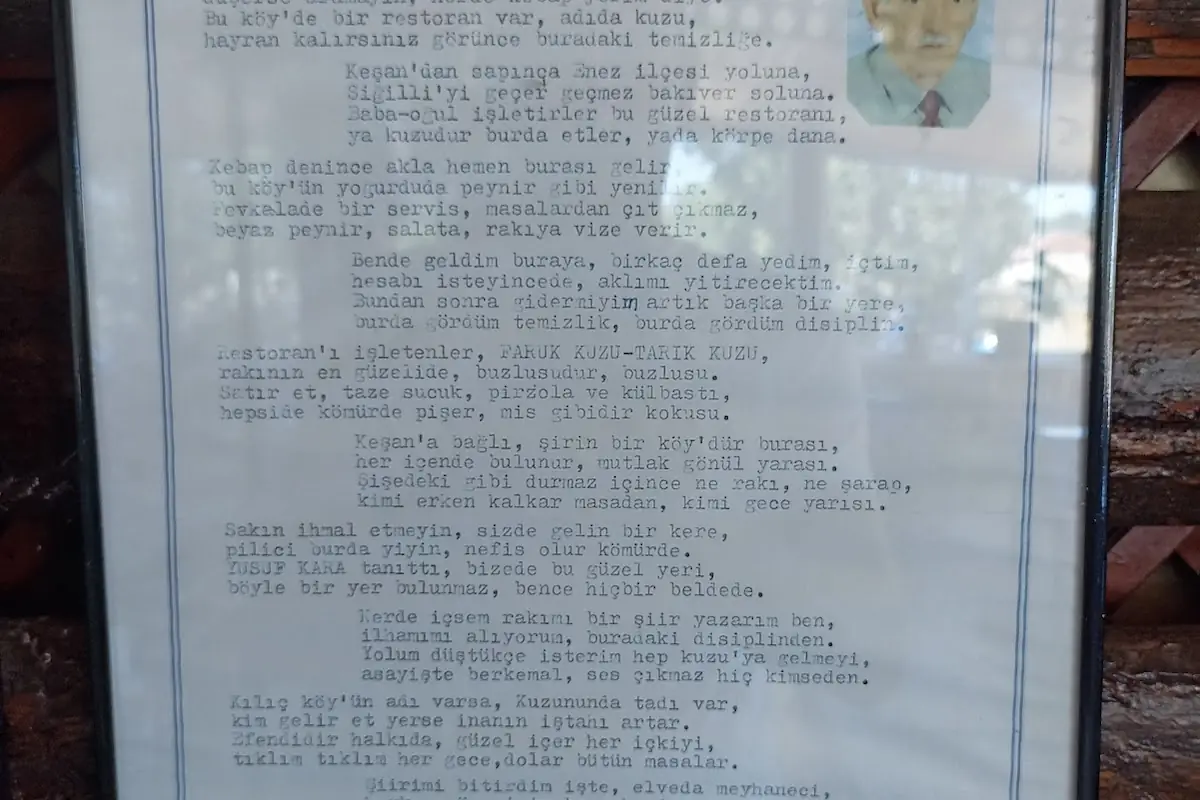 Bu köy'de bir restoran var, adıda kuzu,
hayran kalırsınız görünce buradaki temizliğe.
Keşan'dan sapınça Enez ilçesi yoluna,
Siğilli'yi geçer geçmez bakıver soluna.
Baba-oğul işletirler bu güzel restoranı,
ya kuzudur burda etler, yada körpe dana.
Kebap denince akla hemen burası gelir,
bu köy'ün yogurduda peynir gibi yenilir.
Fevkalade bir servis, masalardan çıt çıkmaz,
beyaz peynir, salata, rakıya vize verir.
Bende geldim buraya, birkaç defa yedim, içtim,
hesabı isteyincede, aklımı yitirecektim.
Bundan sonra gidermiyim artık başka bir yere,
burda gördüm temizlik, burda gördüm disiplin.
Restoran'ı işletenler, FARUK KUZU-TARIK KUZU,
rakının en güzelide, buzlusudur, buzlusu.
Satır et, taze sucuk, pirzola ve külbastı,
hepside kömürde pişer, mis gibidir kokusu.
Keşan'a bağlı, şirin bir köy'dür burası,
her içende bulunur, mutlak gönül yarası.
Şişedeki gibi durmaz içince ne rakı, ne şarap,
kimi erken kalkar masadan, kimi gece yarısı.
Sakın ihmal etmeyin, sizde gelin bir kere,
pilici burda yiyin, nefis olur kömürde.
YUSUF KARA tanıttı, bizede bu güzel yeri,
böyle bir yer bulunmaz, bence hiçbir beldede.
Nerde içsem rakımı bir şiir yazarım ben,
ilhamımı alıyorum, buradaki disiplinden.
Yolum düştükçe isterim hep kuzu'ya gelmeyi,
asayişte berkemal, ses çıkmaz hiç kimseden.
Kılıç köy'ün adı varsa, Kuzununda tadı var,
kim gelir et yerse inanın iştahı artar.
Efendidir halkıda, güzel içer her içkiyi,
tıklım tıklım her gece,dolar bütün masalar.
Şiirimi bitirdim işte, elveda meyhaneci,